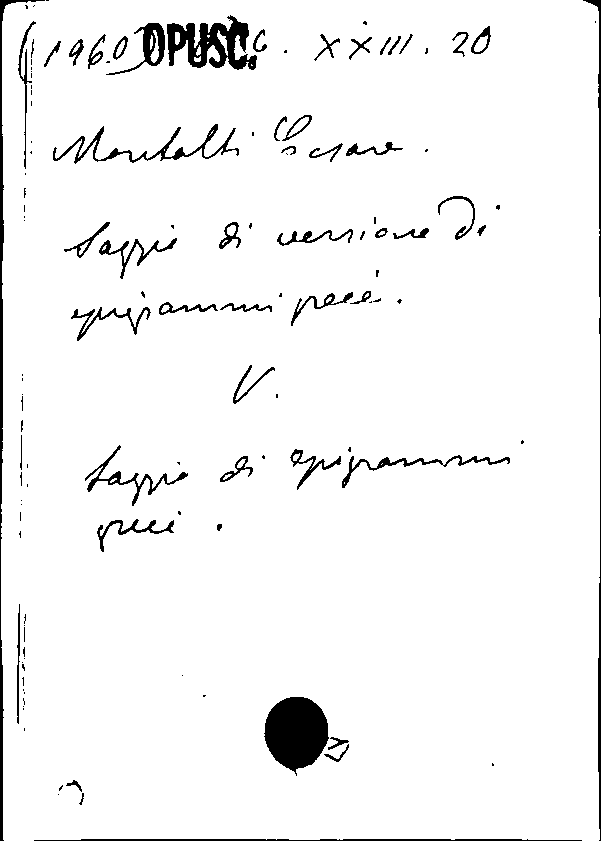 (1960) OPUSC. C. XXIII. 20
Montalti Cesare.
Saggio di versione di
epigrammi greci.
V.
Saggio di epigrammi
greci.